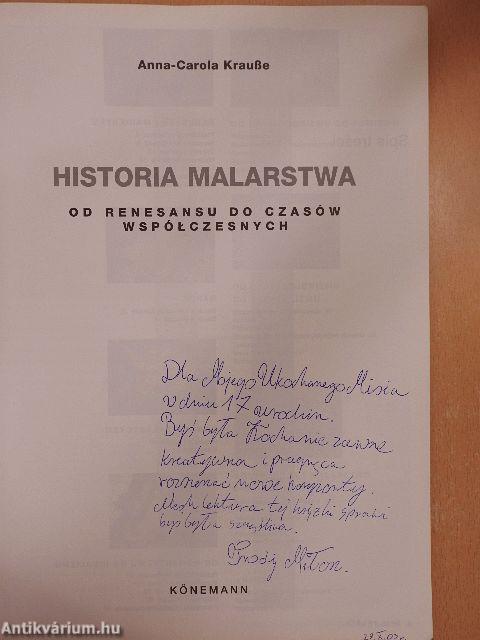 Anna-Carola Krauße
Spis treści
HISTORIA MALARSTWA
OD RENESANSU DO CZASÓW
WSPÓŁCZESNYCH
Dla Mojego Ukochanego Misia
w dniu 17 urodzin.
Byś była Kochanie zawsze
kreatywna i pragnąca
rozwijać horyzonty.
Niech lektura tej książki sprawi
byś była szczęśliwa.
Miłosz.
KÖNEMANN
Antikvárium.hu